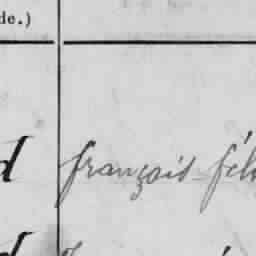 de.)
d françois fél
d